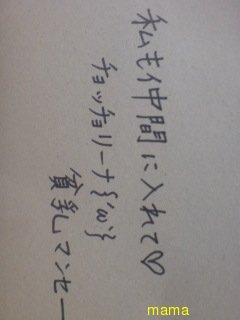 私も仲間に入れて♡
チョッチョリーナ{'ω'}
貧乳マンセー
mama